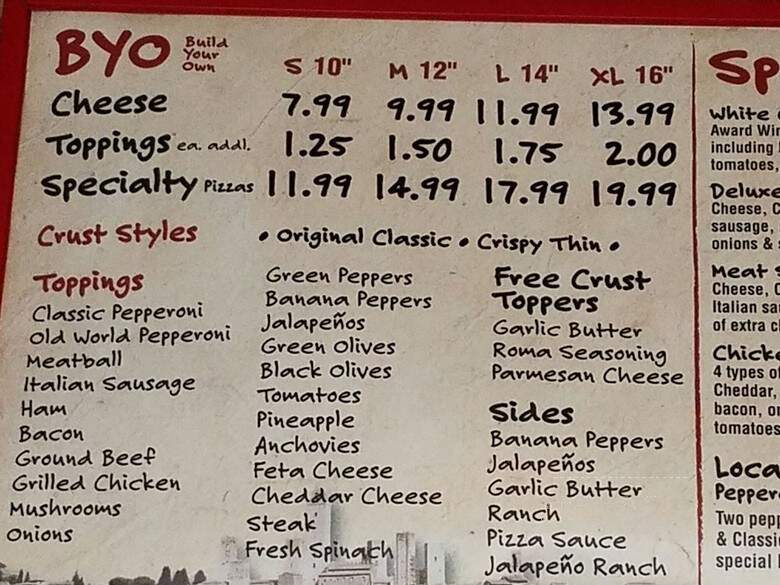 BYO Build Your Own
S 10" M 12" L 14" XL 16"
Cheese 7.99 9.99 11.99 13.99
Toppings ea. addl. 1.25 1.50 1.75 2.00
Specialty Pizzas 11.99 14.99 17.99 19.99
Crust Styles • Original Classic • Crispy Thin •
Toppings
Classic Pepperoni
Old World Pepperoni
Meatball
Italian Sausage
Ham
Bacon
Ground Beef
Grilled Chicken
Mushrooms
Onions
Green Peppers
Banana Peppers
Jalapeños
Green Olives
Black Olives
Tomatoes
Pineapple
Anchovies
Feta Cheese
Cheddar Cheese
Steak
Fresh Spinach
Free Crust
Toppers
Garlic Butter
Roma Seasoning
Parmesan Cheese
Sides
Banana Peppers
Jalapeños
Garlic Butter
Ranch
Pizza Sauce
Jalapeño Ranch
Sp
White
Award Win
including
tomatoes,
Deluxe
Cheese, C
sausage,
onions &
Meat
Cheese, C
Italian sa
of extra c
Chicke
4 types of
Cheddar,
bacon, o
tomatoes
Loca
Pepper
Two pepp
& Classi
special